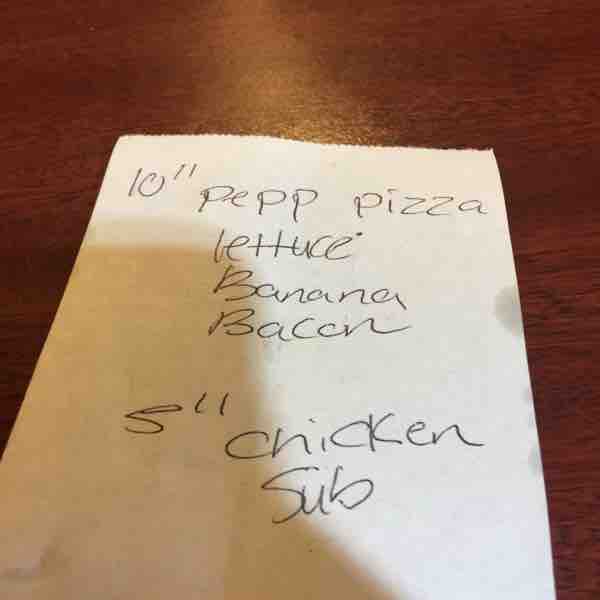 10" pepp pizza
lettuce
Banana
Bacon
5" chicken
Sub